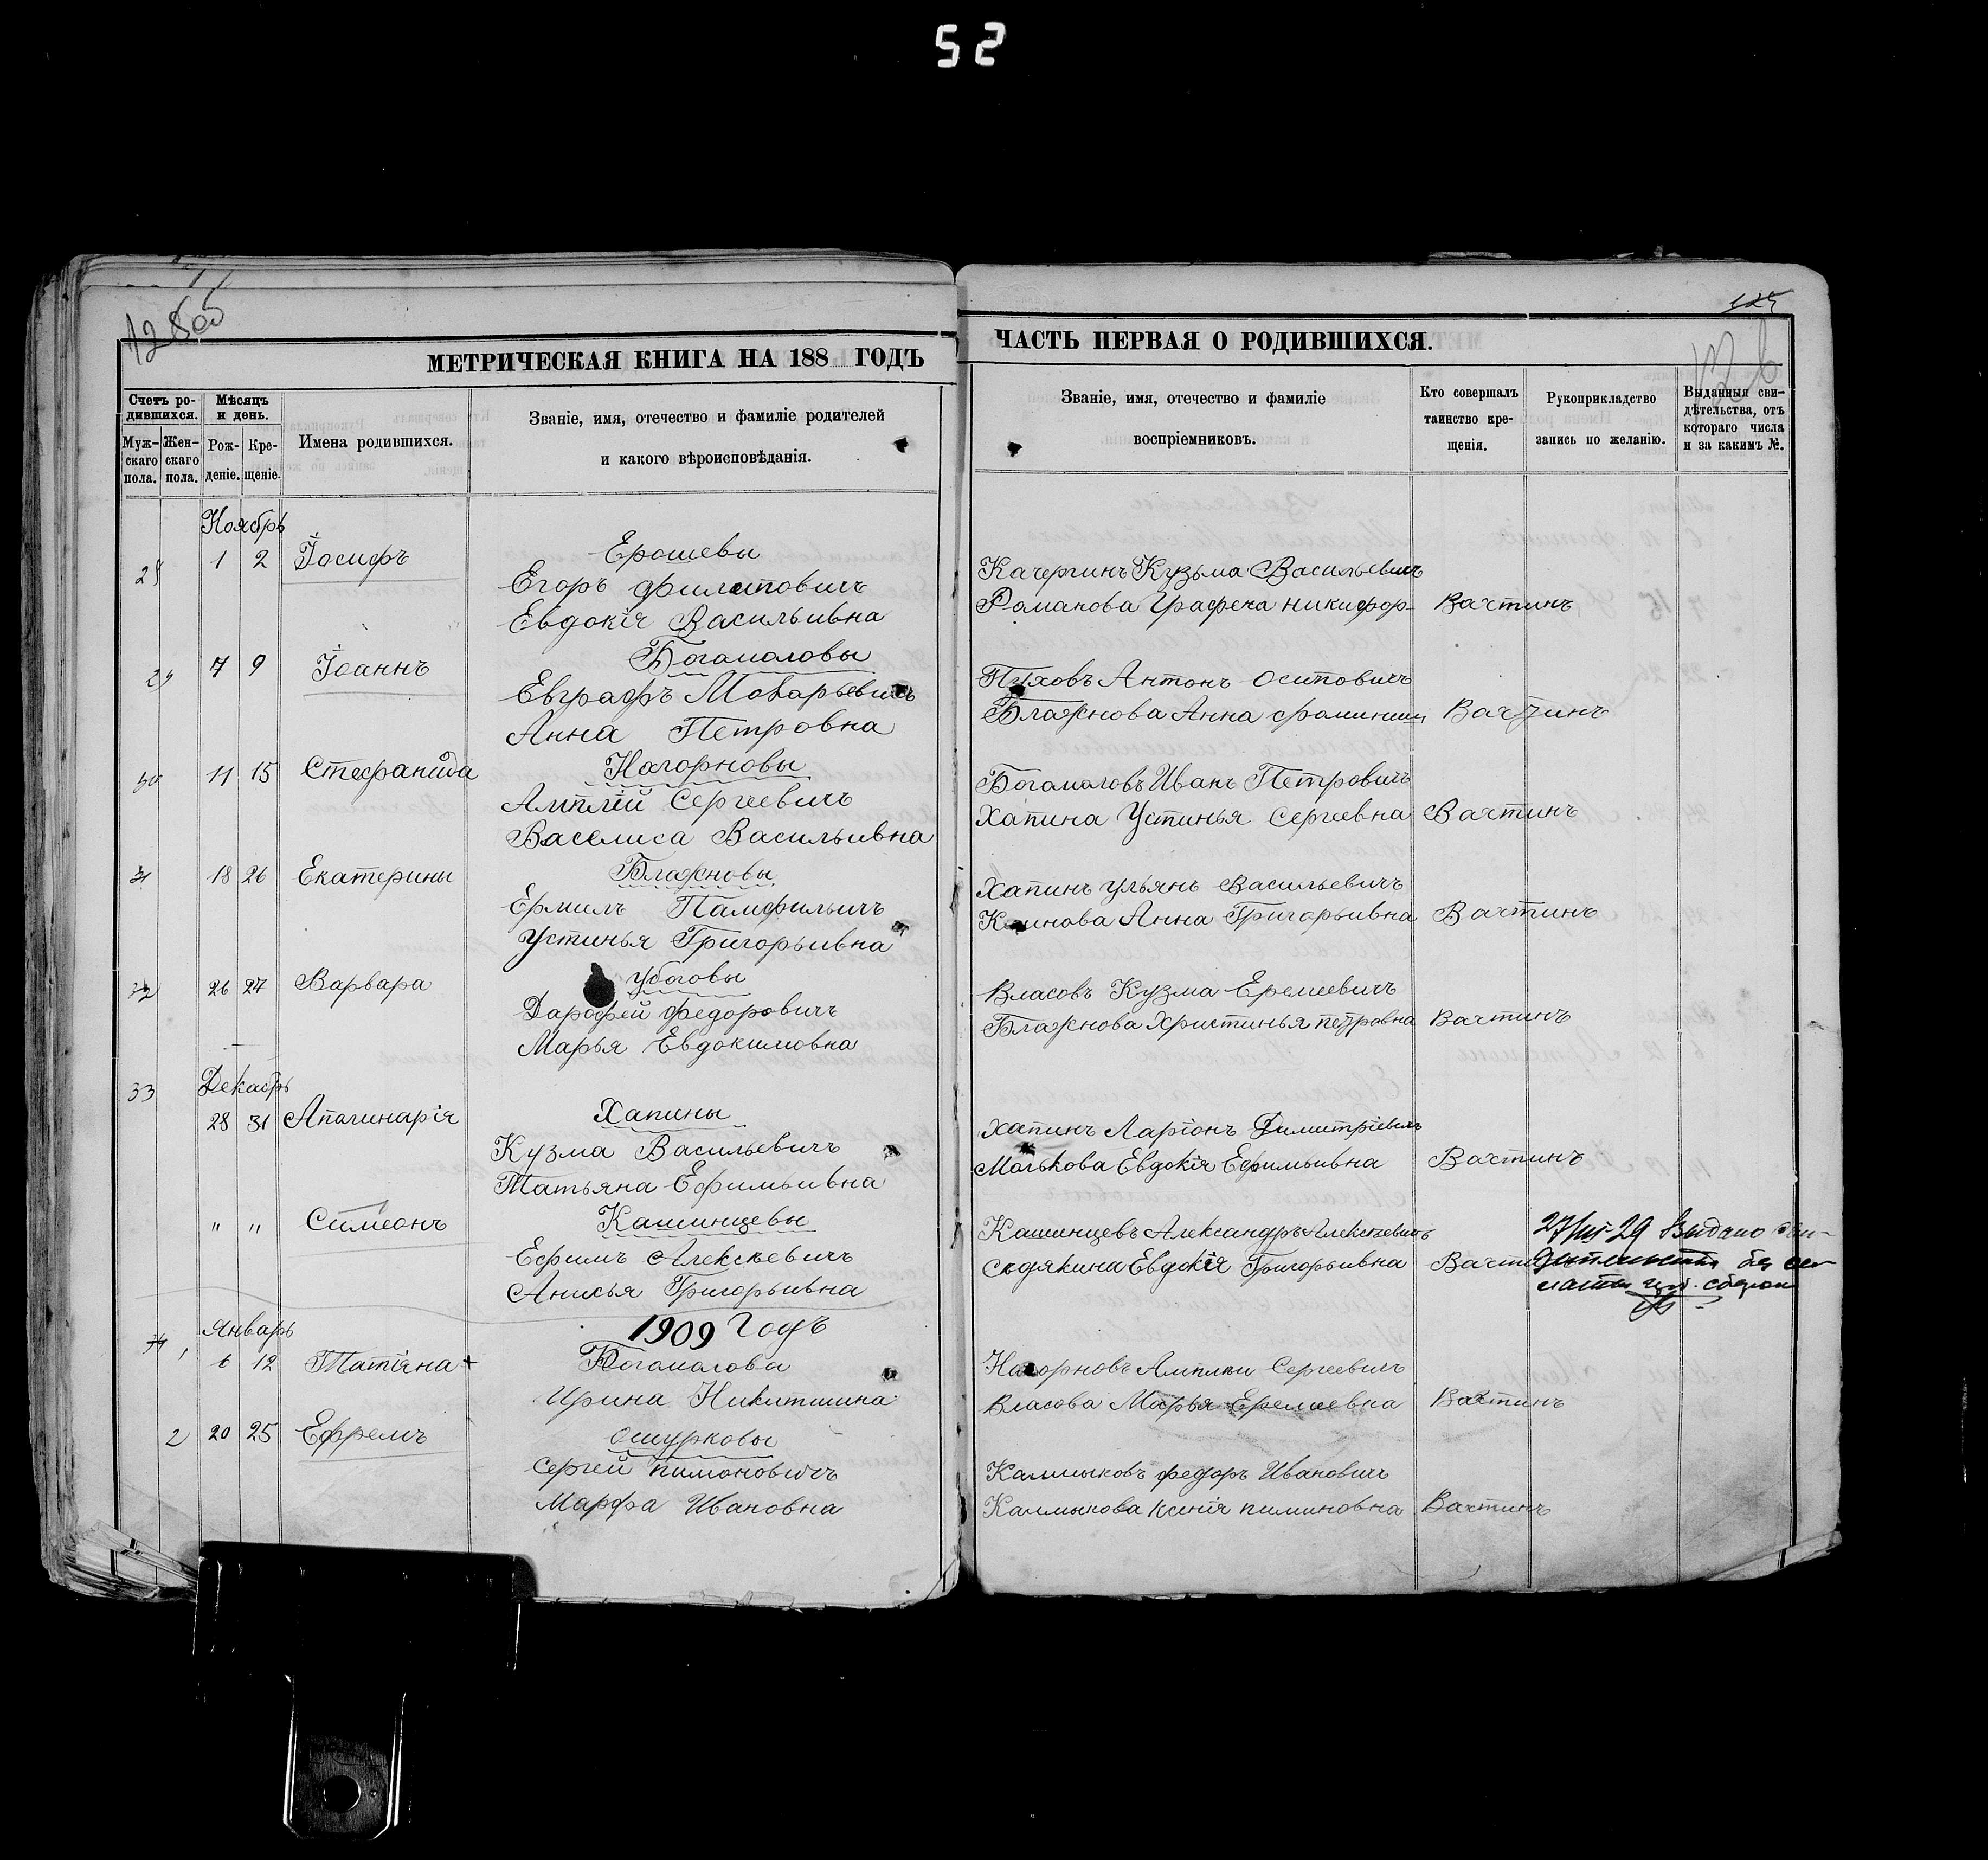 52
125
МЕТРИЧЕСКАЯ КНИГА НА 188 ГОДЪ
ЧАСТЬ ПЕРВАЯ О РОДИВШИХСЯ.
Счетъ ро-
дившихся.
Муж-
скаго
пола.
Жен-
скаго
пола.
Мѣсяцъ
и день.
Рож-
деніе.
Кре-
щеніе.
Имена родившихся.
Званіе, имя, отечество и фамиліе родителей
и какого вѣроисповѣданія.
Званіе, имя, отечество и фамиліе
воспріемниковъ.
Кто совершалъ
таинство кре-
щенія.
Рукоприкладство
запись по желанію.
Выданныя сви-
дѣтельства, отъ
котораго числа
и за какимъ №.
Ноябрь
1 2 Іосифъ
Ерошевы
Егоръ Филиповичъ
Евдокія Васильивна
Качергинъ Кузьма Васильевичъ
Романова Графена Никифор- Вахтинъ
29 7 9 Іоаннъ
Богомоловы
Евграфъ Макарьевичъ
Анна Петровна
Пуховъ Антонъ Осиповичъ
Блажнова Анна Вахтинъ
30 11 15 Стефанида
Нагорновы
Амплій Сергеевичъ
Васелиса Васильивна
Богомоловъ Иванъ Петровичъ
Хапина Устинья Сергеевна Вахтинъ
31 18 26 Екатерины
Блажновы
Ермилъ Памфильичъ
Устинья Григорьивна
Хапинъ Ульянъ Васильевичъ
Анна Григорьивна Вахтинъ
32 26 27 Варвара
Убоговы
Дарофей Федоровичъ
Марья Евдокимовна
Власовъ Кузма Еремеевичъ
Блажнова Христинья Петровна Вахтинъ
33 Декабрь
28 31 Апалинарія
Хапины
Кузма Васильевичъ
Татьяна Ефимьивна
Хапинъ Ларіонъ Димитріевичъ
Малькова Евдокія Ефимьивна Вахтинъ
" " Симеонъ
Кашинцевы
Ефимъ Алексѣевичъ
Анисья Григорьивна
Кашинцевъ Александръ Алексѣевичъ
Сѣдякина Евдокія Григорьивна
27/VII-29 Выдано
1909 Годъ
Январь
1 6 12 Татіяна +
Богомолова
Ирина Никитишна
Нагорновъ Амплѣй Сергеевичъ
Власова Марья Еремеевна Вахтинъ
2 20 25 Ефремъ
Ошурковы
Сергей Пимоновичъ
Марфа Ивановна
Калмыковъ Федоръ Ивановичъ
Калмыкова Ксенія Пиминовна Вахтинъ